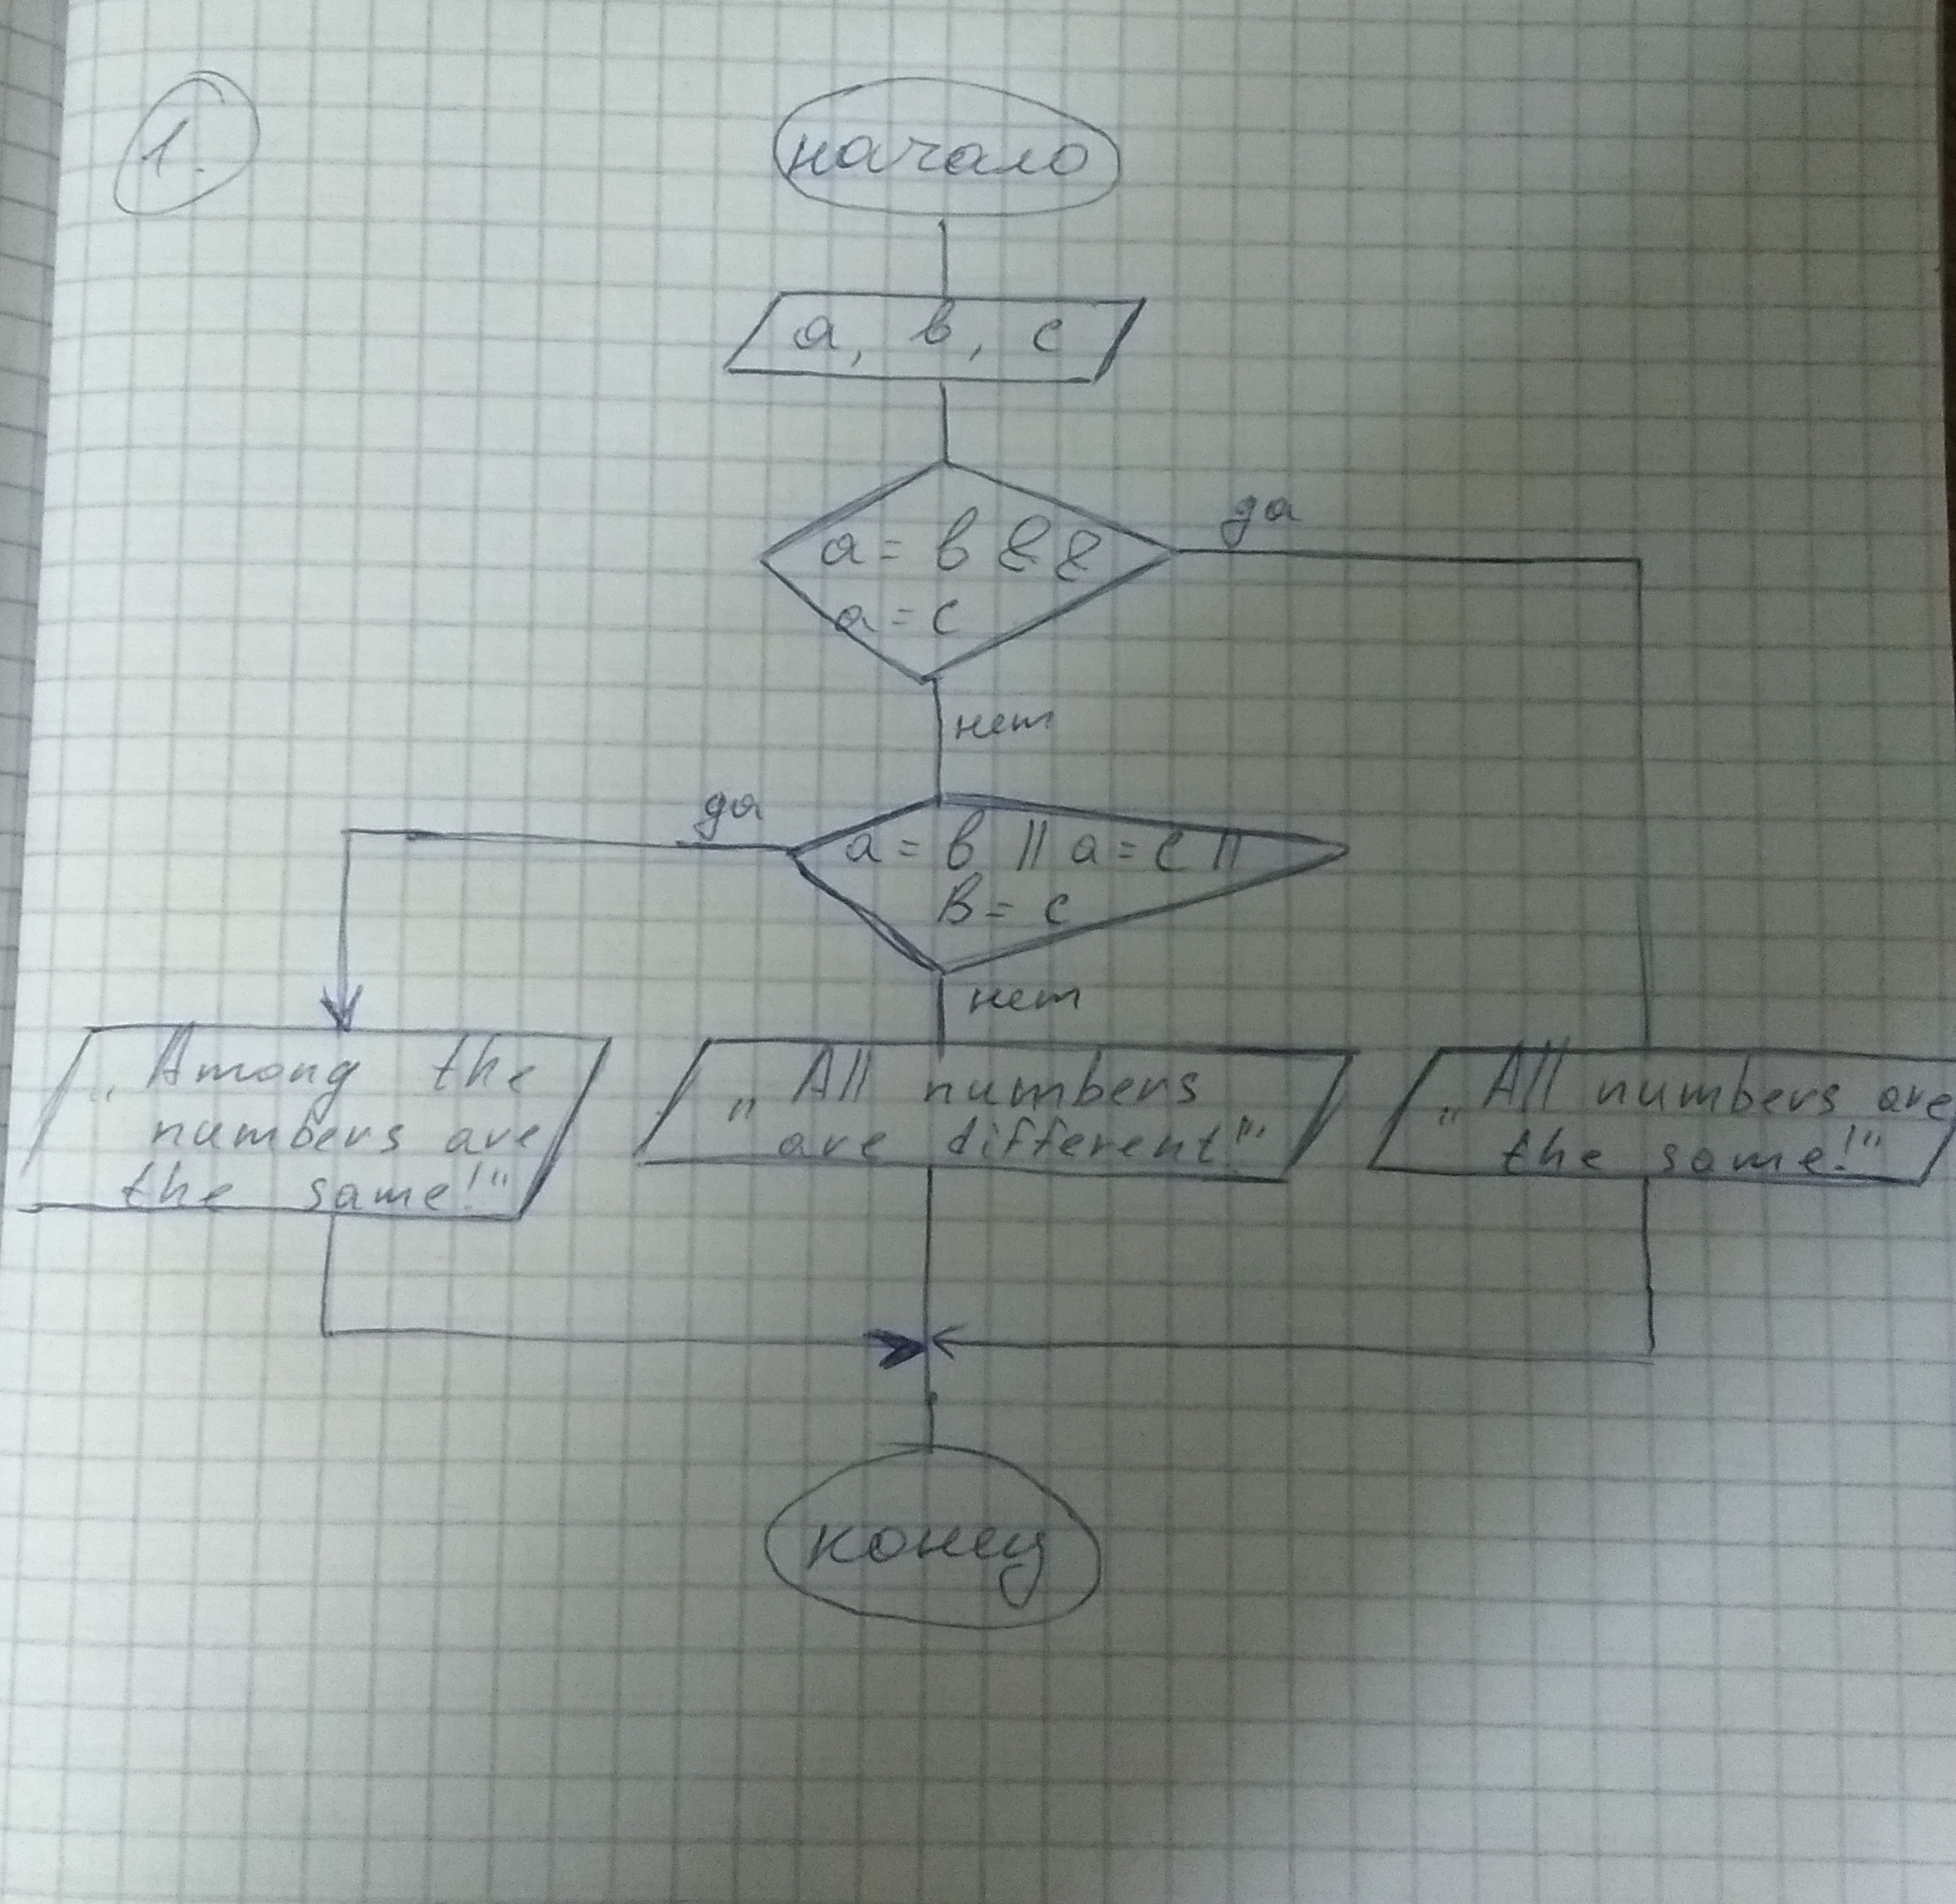 1.
начало
а, в, с
да
а = в &&
а = с
нет
да
а = в || а = с ||
в = с
нет
„Among the
numbers are
the same!"
„All numbers
are different!"
„All numbers are
the same!"
конец